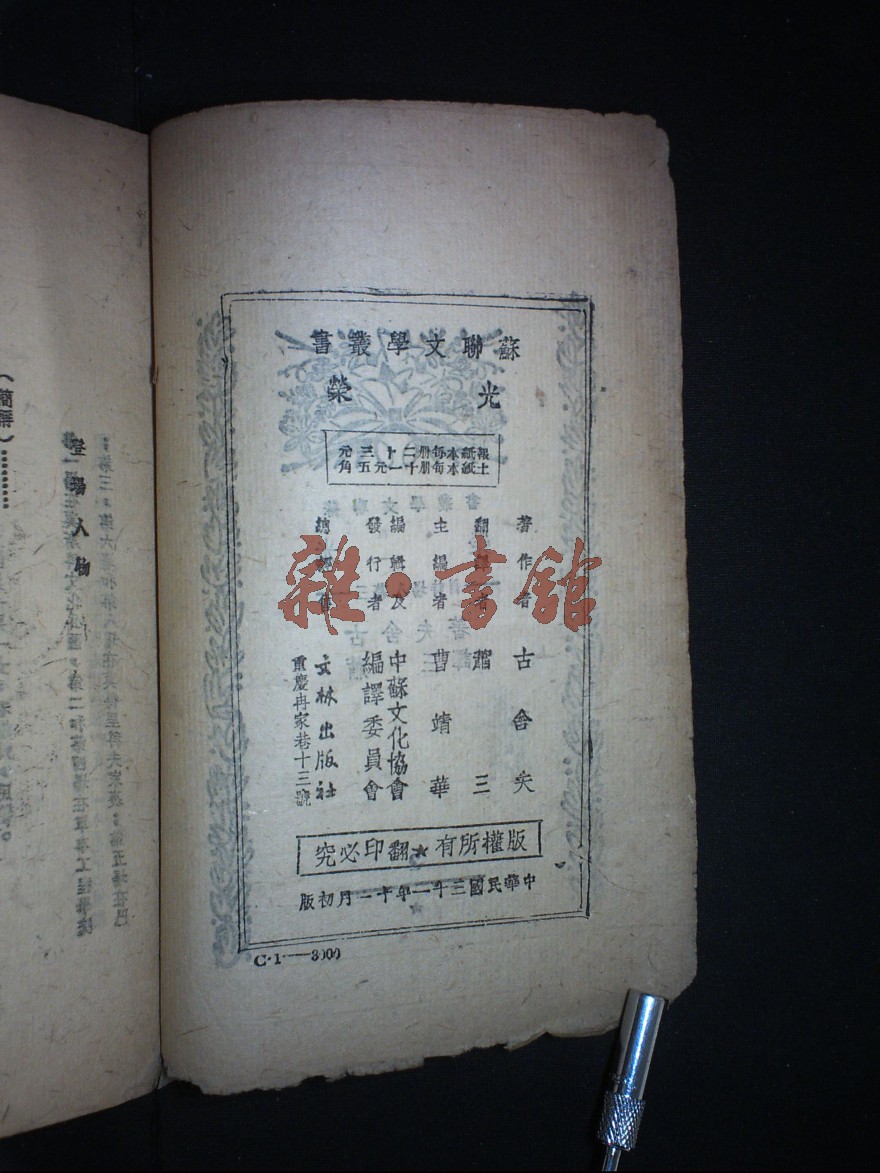 蘇聯文學叢書
光榮
報紙本每冊二十三元
土紙本每冊十一元五角
著作者 古舍夫
翻譯者 蕭三
主編者 曹靖華
編輯及發行者 中蘇文化協會編譯委員會
總經售 文林出版社
重慶冉家巷十三號
版權所有★翻印必究
中華民國三十一年十二月初版
C·1——3000
登場人物
雜·書館